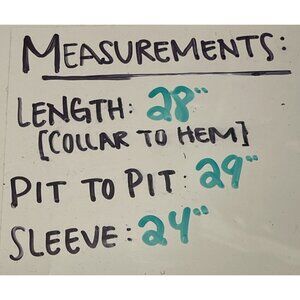 MEASUREMENTS:
LENGTH: 28"
[COLLAR TO HEM]
PIT TO PIT: 29"
SLEEVE: 24"